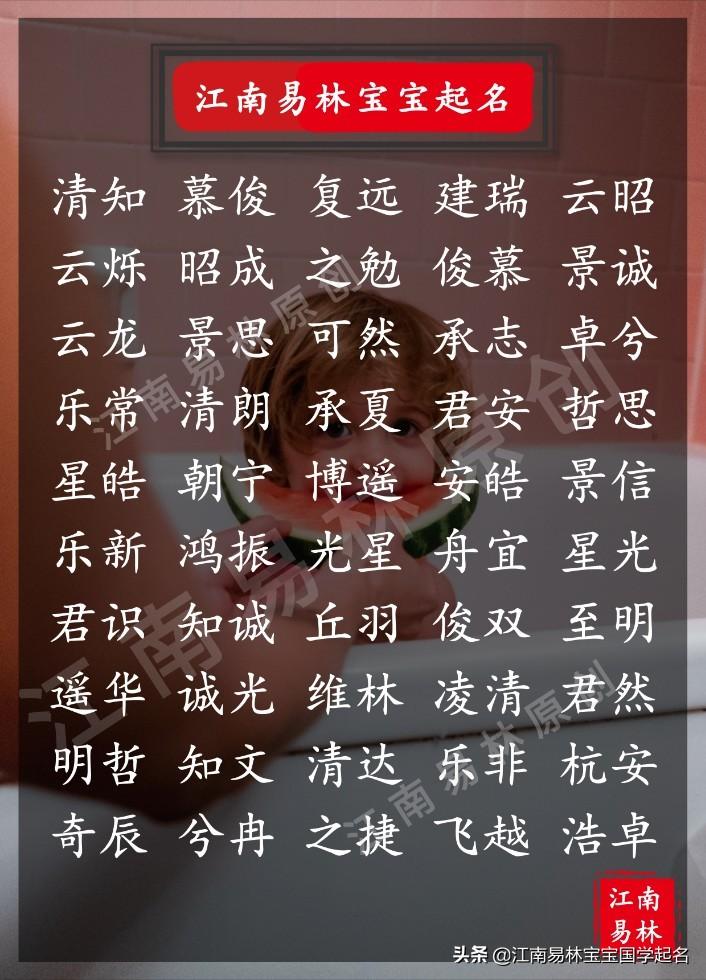 江南易林宝宝起名
清知 慕俊 复远 建瑞 云昭
云烁 昭成 之勉 俊慕 景诚
云龙 景思 可然 承志 卓兮
乐常 清朗 承夏 君安 哲思
星皓 朝宁 博遥 安皓 景信
乐新 鸿振 光星 舟宜 星光
君识 知诚 丘羽 俊双 至明
遥华 诚光 维林 凌清 君然
明哲 知文 清达 乐非 杭安
奇辰 兮冉 之捷 飞越 浩卓
江南易林原创
江南易林原创
江南易林原创
江南
易林
头条 @江南易林宝宝国学起名